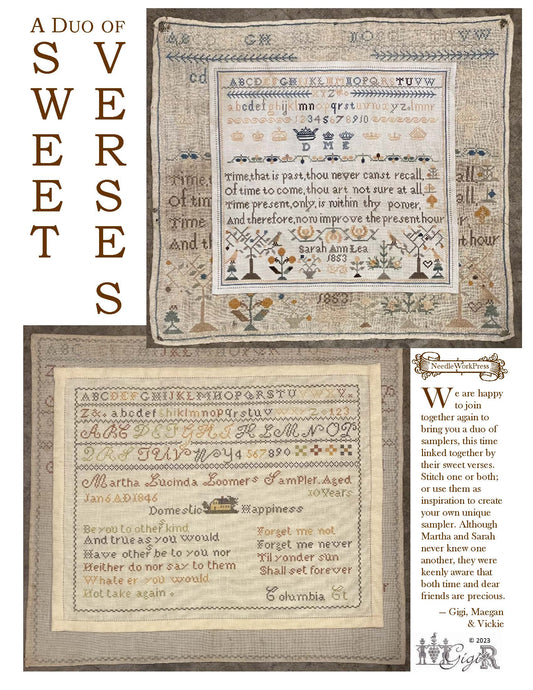 A DUO OF
SWEET
VERSES
ABCDEFGHIJKLMNOPQRSTUVW
XYZ
abcdefghijklmnopqrstuvwxyz
12345678910
D M E
Time, that is past, thou never canst recall,
Of time to come, thou art not sure at all,
Time present, only, is within thy power,
And therefore, now improve the present hour
Sarah Ann Lea
1853
1853
NeedleWorkPress
We are happy
to join
together again to
bring you a duo of
samplers, this time
linked together by
their sweet verses.
Stitch one or both;
or use them as
inspiration to create
your own unique
sampler. Although
Martha and Sarah
never knew one
another, they were
keenly aware that
both time and dear
friends are precious.
— Gigi, Maegan
& Vickie
© 2023
GigiR
ABCDEFGHIJKLMNOPQRSTU
Z& abcdefghijklmnopqrstuv
Martha Lucinda Loomers Sampler. Aged
Jan 6 AD 1846 10 Years
Domestic Happiness
Be you to others kind
And true as you would
Have other be to you nor
Neither do nor say to them
Whate er you would
Not take again.
Forget me not
Forget me never
Til yonder sun
Shall set forever
Columbia Ct